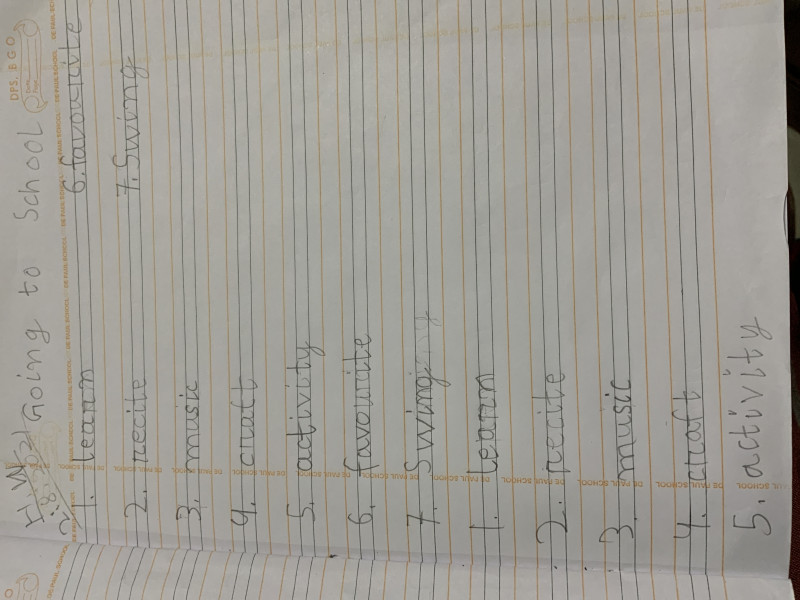 DPS, BGO
H.W
Going to School
1. learn 6. favourite
2. recite 7. Swing
3. music
4. craft
5. activity
6. favourite
7. Swing
1. learn
2. recite
3. music
4. craft
5. activity
DE PAUL SCHOOL